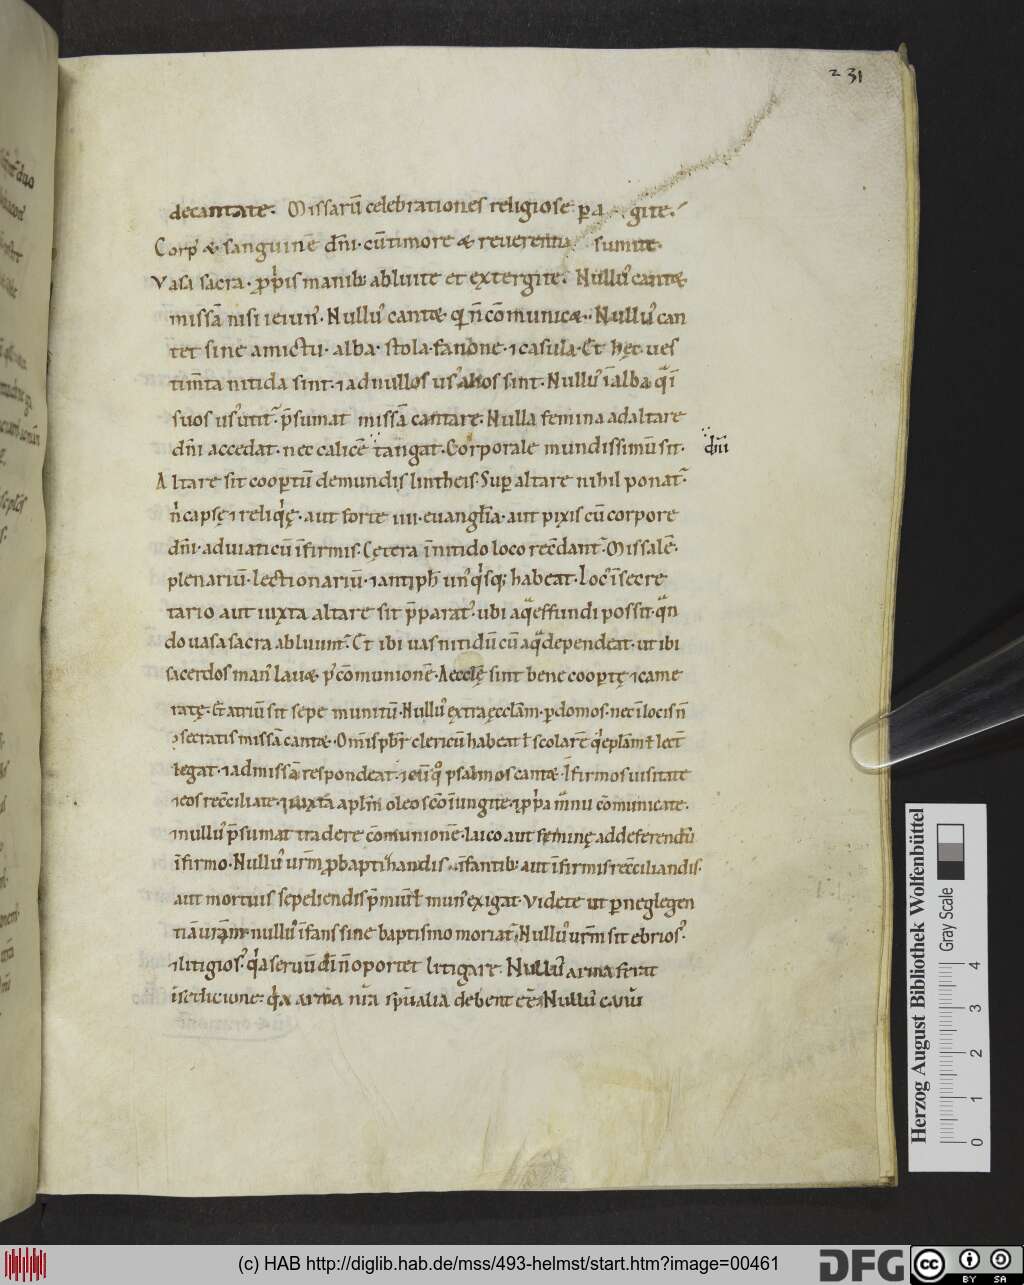 231
decantate. Missarū celebrationes religiose pa gite.
Corp' & sanguinē dñi· cū timore & reuerentia sumite·
Vasa sacra· ꝓpriis manib; abluite et extergite. Nullus cantet
missā nisi ieiun'. Nullus cantet q' ñ cōmunicet. Nullus can
tet sine amictu· alba· stola· fanone· ⁊ casula. Et hęc ues
tim̄ta nitida sint. ⁊ ad nullos us' alios sint. Nullus ī alba q̄ ī
suos us' utit' p̄sumat missā cantare. Nulla femina ad altare
dñi accedat· nec calicē tangat. Corporale mundissimū sit.
dñi
Altare sit coopertū de mundis lintheis. Sup altare nihil ponat'
ñ capsę ⁊ reliq'ę· aut forte iiii· euangl̄ia· aut pixis cū corpore
dñi· ad uiaticū īfirmis. Cętera ī nitido loco recōdant'. Missalē·
plenariū· lectionariū· ⁊ antiph̄ un' q'sq; habeat. Loc' ī secre
tario aut iuxta altare sit p̄parat'· ubi aq̄ effundi possit· q̄n
do uasa sacra abluunt'. Et ibi uas nitidū cū aq̄ dependeat· ut ibi
sacerdos man' lauet p' cōmunionē. Aecclę sint bene coopertę ⁊ came
ratę. Et atriū sit sepe munitū. Nullus extra ecclam· p domos· nec ī locis ñ
cōsecratis missā cantet. Omīs pbr̄ clericū habeat ł scolarē q' eplam ł lect̄
legat· ⁊ ad missā respondeat· ⁊ cū q° psalmos cantet. Īfirmos uisitate
⁊ eos recōciliate· ⁊ iuxta aplm̄ oleo sc̄o īungite· ⁊ ꝓpria manu cōmunicate·
⁊ nullus p̄sumat tradere cōmunionē· laico aut feminę ad deferendū
īfirmo. Nullus urm̄ ꝓ baptizandis īfantib; aut īfirmis recōciliandis·
aut mortuis sepeliendis p̄miū ł mun' exigat. Videte ut p neglegen
tiā urām nullus īfans sine baptismo moriat'. Nullus urm̄ sit ebrios'
⁊ litigios'. q̄a seruū dñi ñ oportet litigare. Nullus arma ferat
ī seditione. q̄a arma nr̄a spūalia debent eē. Nullus canū
Herzog August Bibliothek Wolfenbüttel
Gray Scale
0 1 2 3 4
(c) HAB http://diglib.hab.de/mss/493-helmst/start.htm?image=00461
DFG
CC BY SA